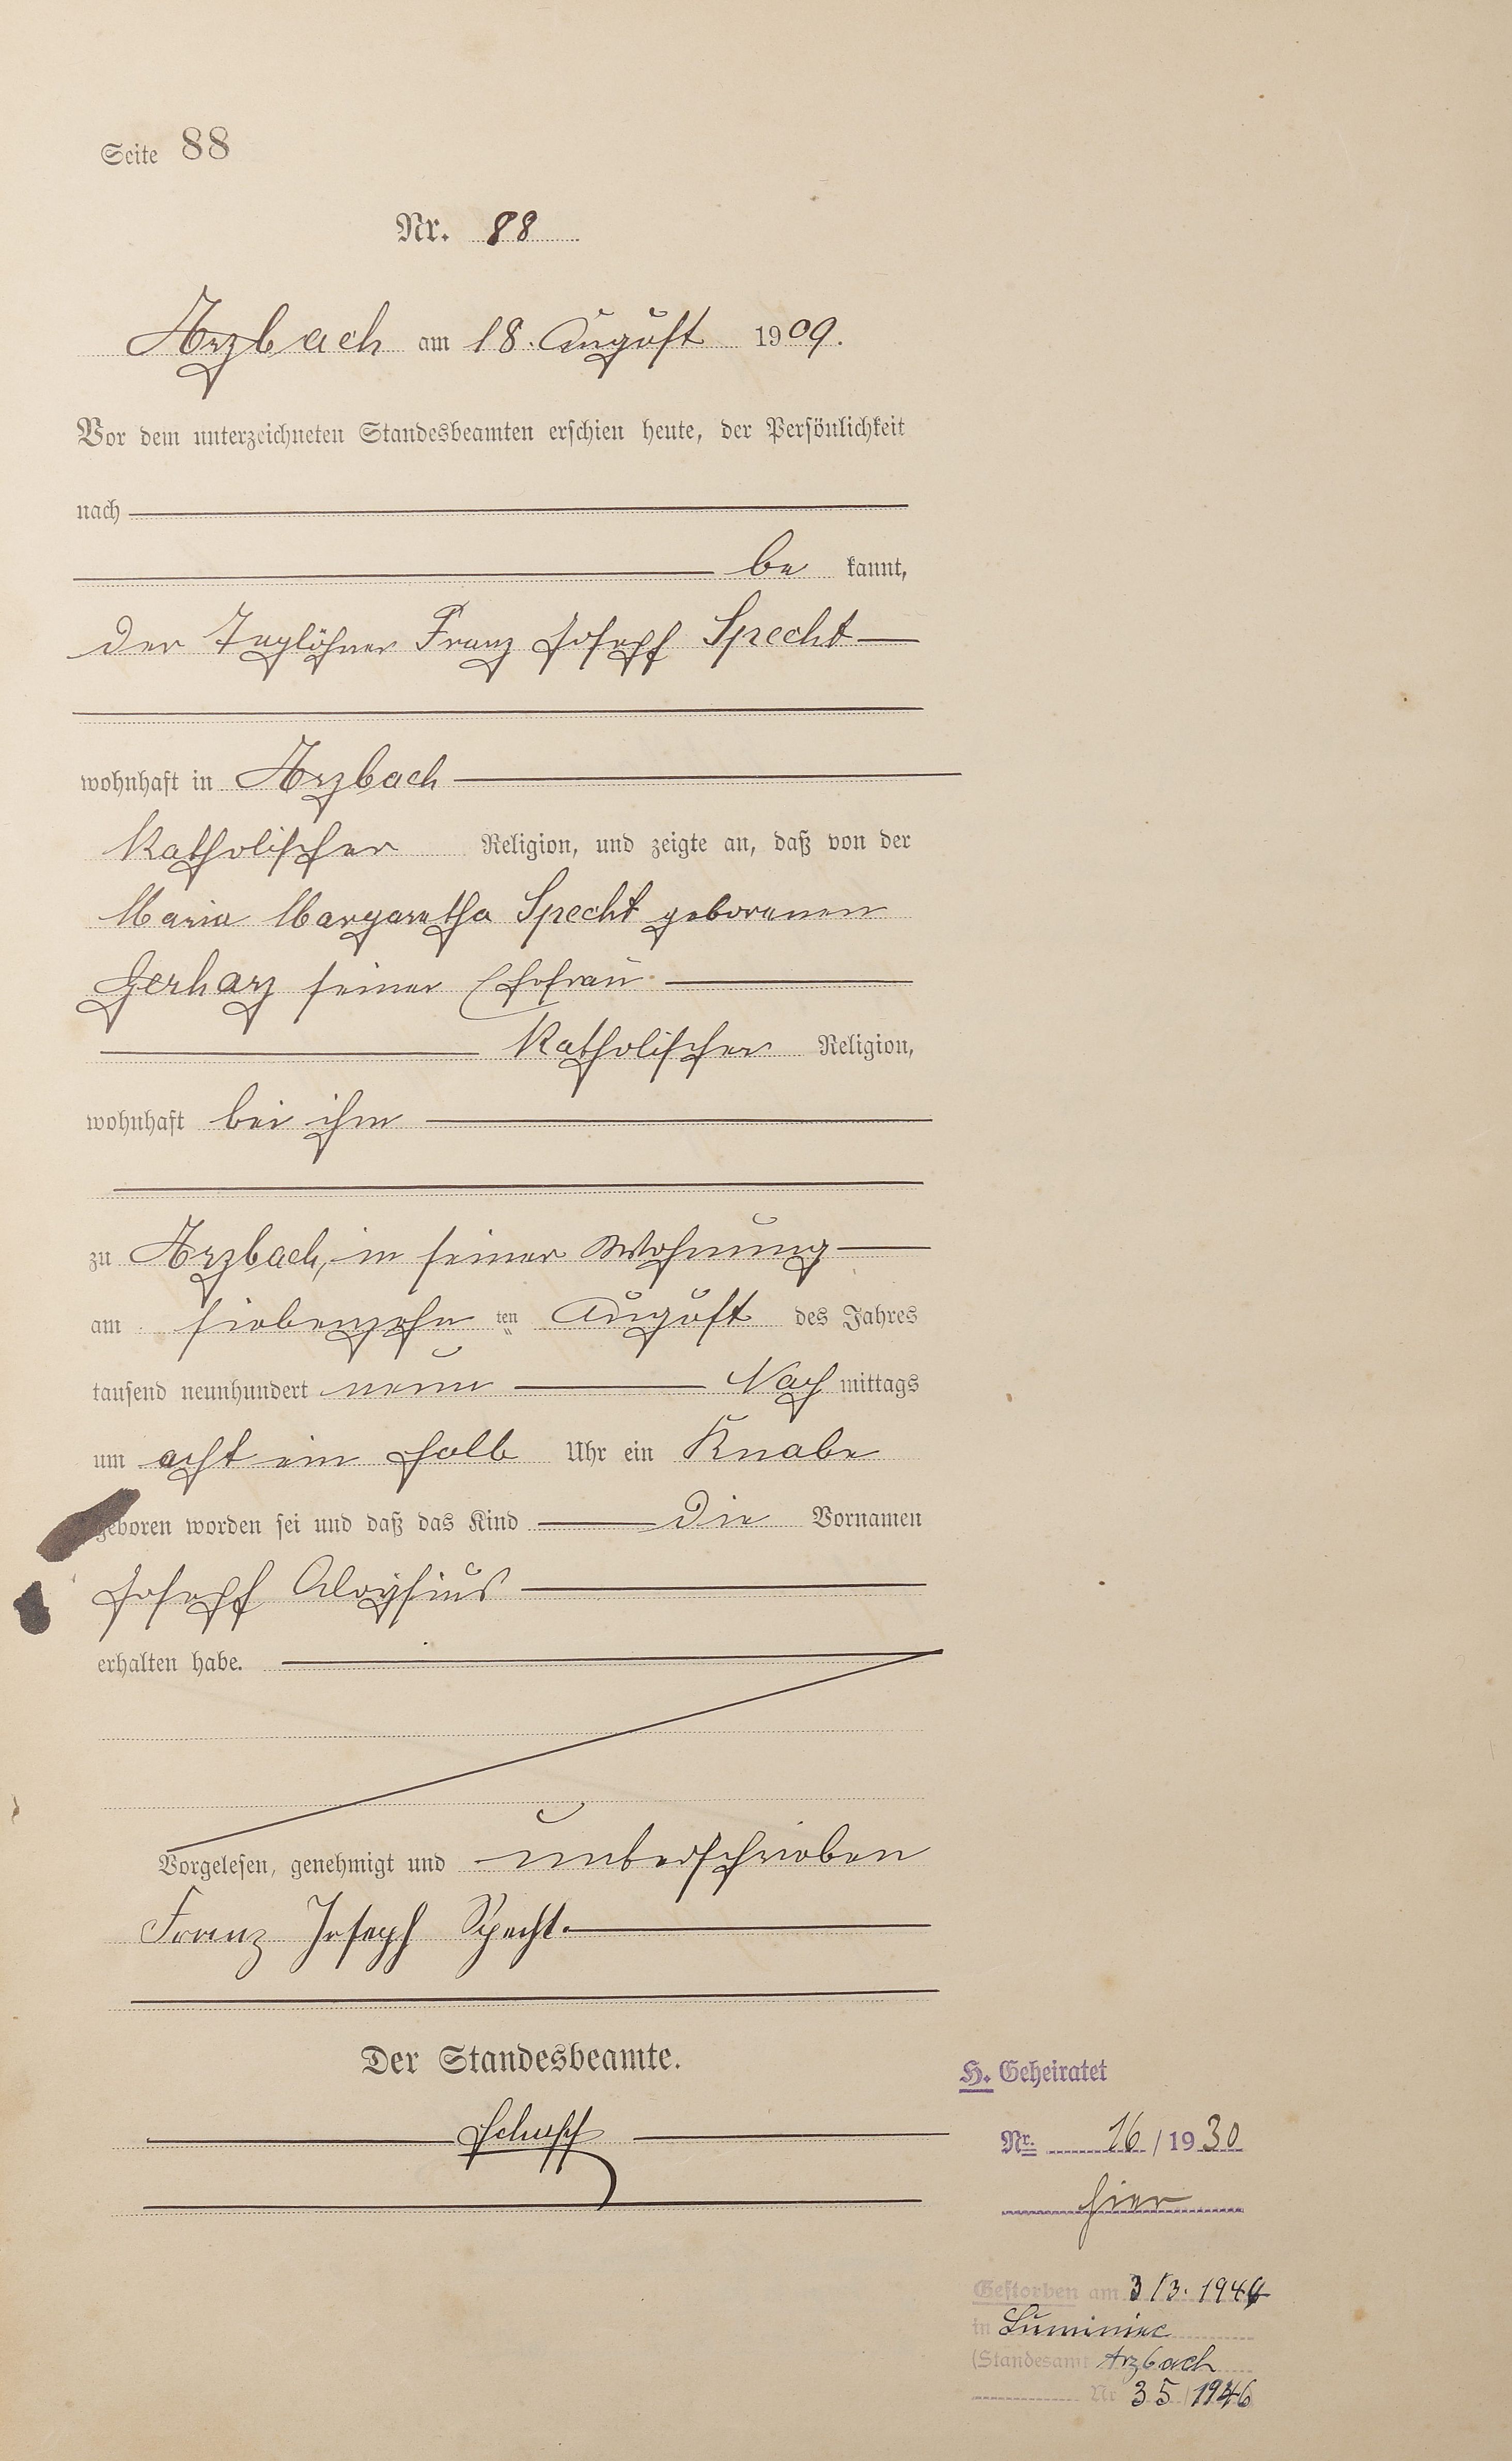 Seite 88
Nr. 88
Arzbach am 18. August 1909.
Vor dem unterzeichneten Standesbeamten erschien heute, der Persönlichkeit
nach
be kannt,
der Taglöhner Franz Joseph Specht
wohnhaft in Arzbach
katholischer Religion, und zeigte an, daß von der
Maria Margaretha Specht geborenen
Gerharz seiner Ehefrau
katholischer Religion,
wohnhaft bei ihm
zu Arzbach, in seiner Wohnung
am siebenzehn ten August des Jahres
tausend neunhundert neun Nach mittags
um acht ein halb Uhr ein Knabe
geboren worden sei und daß das Kind die Vornamen
Joseph Aloysius
erhalten habe.
Vorgelesen, genehmigt und unterschrieben
Franz Joseph Specht.
Der Standesbeamte.
H. Geheiratet
Nr. 16 / 1930
hier
Gestorben am 3/3. 1944
in Luminiec
(Standesamt Arzbach
Nr 35 / 1946